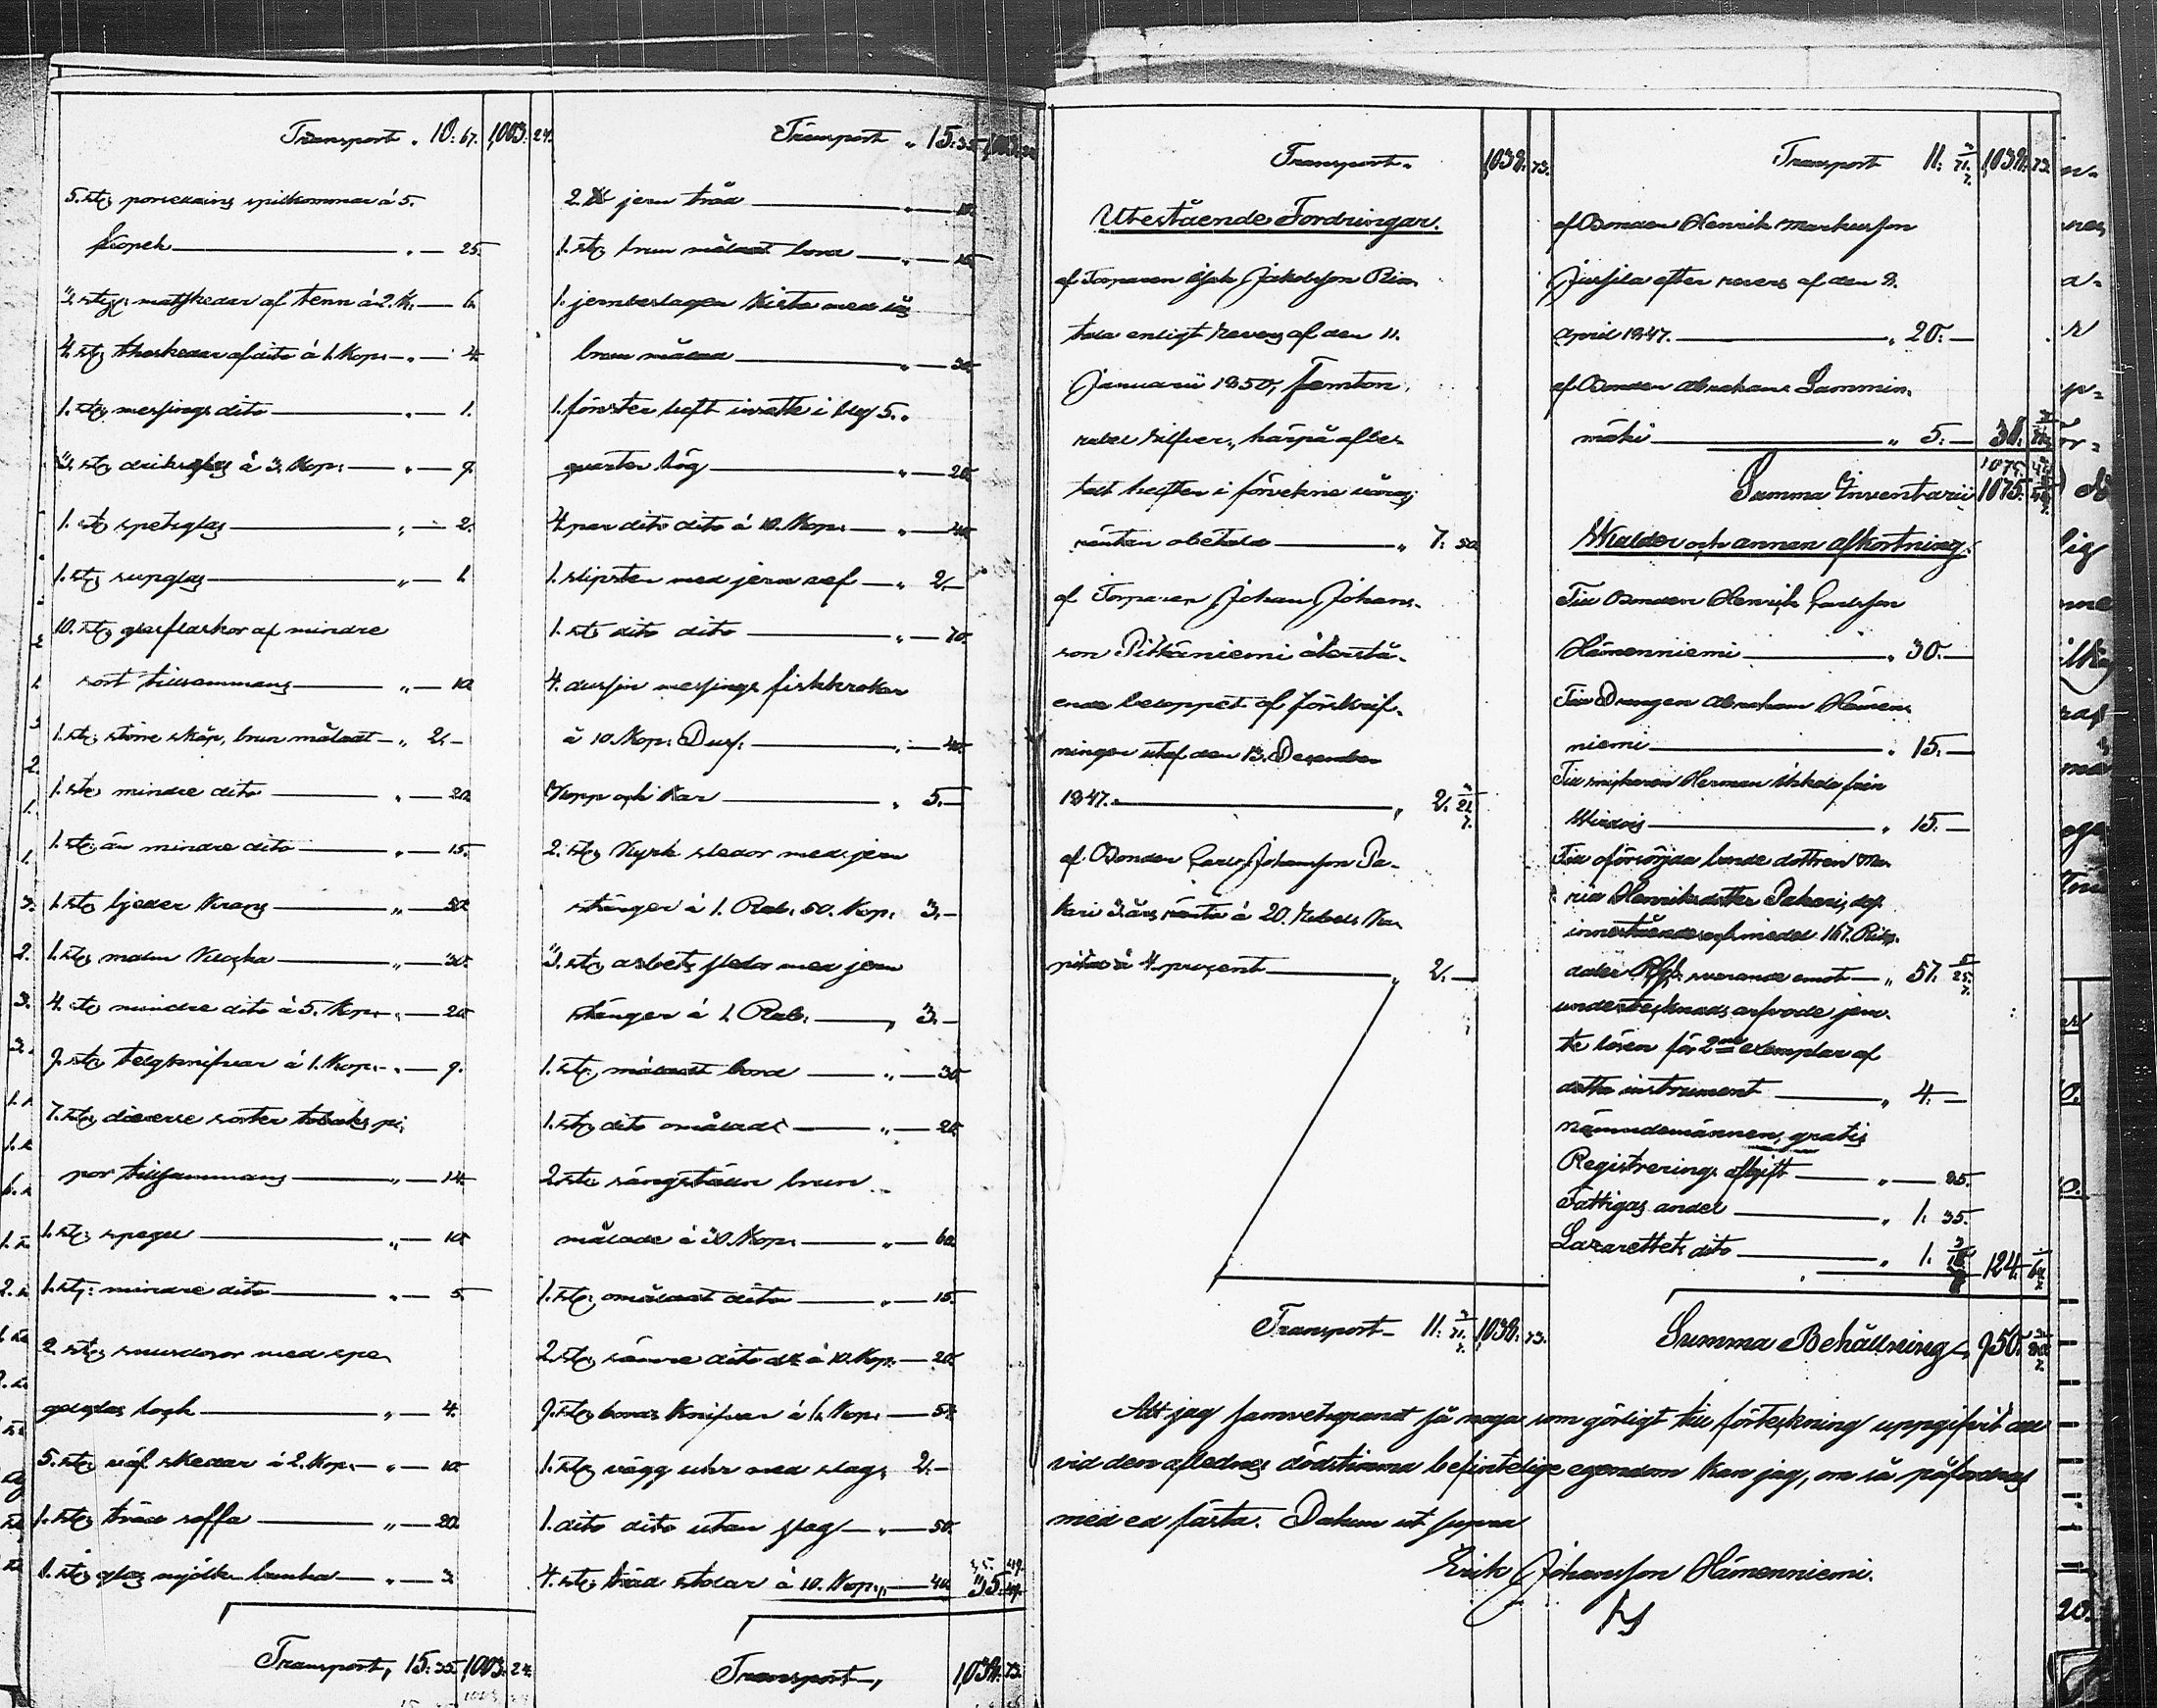 Transport „ 10: 67. 1,003: 24.
5. st: porcelains spilkommar á 5.
Kopek „ — 25.
3. st: matskedar af tenn á 2. K. — 6.
4. st: theskedar af dito á 1. Kop: „ — 4.
1. st: messings dito „ — 1.
3. st: dricksglas á 3. Kop: „ — 9.
1. st: spetsglas „ — 2.
1. st: supglas „ — 1.
10. st: glasflaskor af mindre
sort tillsammans „ — 10.
1. st: större skåp, brun måladt „ 2. —
1. st: mindre dito „ — 20.
1. st: än mindre dito „ — 15.
1. st: bjeller Krans „ — 50.
1. st: malm Klocka „ — 30.
4. st: mindre dito á 5. Kop: „ — 20.
9. st: telgknifvar á 1. Kop: „ — 9.
7. st: diverse sorter tobaks pi-
por tillsammans „ — 14.
1. st: spegel „ — 10.
1. st: mindre dito „ — 5.
2. st: snusdosor med spe-
gelglas lock „ — 4.
5. st: väf skedar á 2. Kop: „ — 10.
1. st: träd soffa „ — 20.
1. st: glas mjölk bunka „ — 3.
Transport, 15: 35. 1,003: 24.
Transport „ 15: 35. 1,003: 24.
2. ℔ jern tråd „ — 10.
1. st: brun måladt bord „ — 15.
1. jernbeslagen Kista med lås
brun målad „ — 30.
1. fönster luft insatte i bly 5.
qvarter hög „ — 20.
4. par dito dito á 10. Kop: „ — 40.
1. slipsten med jern vef „ 2. —
1. st: dito dito „ — 70.
4. dussin messings fiskkrokar
á 10. Kop: Duss: „ — 40.
Kopp och Kar „ 5. —
2. st: Kyrk sledor med jern
stänger á 1. Rub: 50. Kop: 3. —
3. st: arbets sledor med jern
stänger á 1. Rub: „ 3. —
1. st: måladt bord „ — 30.
1. st: dito omåladt „ — 20.
2. st: sängställn brun
målade á 30. Kop: „ — 60.
1. st: omåladt dito „ — 15.
2. st: sämre dito dt: á 10. Kop: — 20.
9. st: bords Knifvar á 6. Kop: — 54.
1. st: vägg uhr med slag, 2. —
1. dito dito utan slag „ — 50.
4. st: träd stolar á 10. Kop: „ — 40. 35. 49.
Transport, 1,038: 73.
Transport „ 1,038: 73.
Utestående Fordringar.
af Torparen Isak Jakobsson Rin-
tala enligt Revers af den 11.
Januarii 1850, femton
rubel silfver, härpå afbe-
talt hälften i förvekne våras,
räntan obetald „ 7. 50.
af Torparen Johan Johans-
son Pitkäniemi återstå-
ende beloppet af förskrif-
ningen utaf den 13. December
1847. „ 2. 21.
af Bonden Carl Johansson Pa-
kari 3 års ränta á 20. Rubels Ka-
pital á 4. procent „ 2. —
Transport „ 11. 71. 1,038: 73.
Transport 11. 71. 1,038: 73.
af Bonden Henrik Markusson
Jussila efter revers af den 8.
April 1847. „ 20. —
af Bonden Abraham Lammin-
mäki „ 5. — 36.
Summa Inventarii 1075.
Skulder och annan afkortning.
Till Bonden Henrik Carlsson
Hämenniemi „ 30. —
Till Drängen Abraham Hämen-
niemi „ 15. —
Till snickaren Herman från
Wirdois „ 15. —
Till oförsörjda bonde dottren Ma-
ria Henriksdotter Pakari, dess
innestående medel 167. Riks-
daler Rgs: svarande emot „ 57. 25.
undertecknads arfvode jem-
te lösen för 2ne exemplar af
detta instrument „ 4. —
nämndemännen, gratis
Registrerings afgift „ — 85.
Fattigas andel „ 1. 35.
Lazarettets dito „ 1. 124. 64.
Summa Behållning „ 950.
Att jag samvetsgrannt så noga som görligt till förteckning uppgifvit all
vid den aflednes dödstimma befintelige egendom kan jag, om så påfordras
med ed fästa. Datum ut supra
Erik Johansson Hämenniemi.